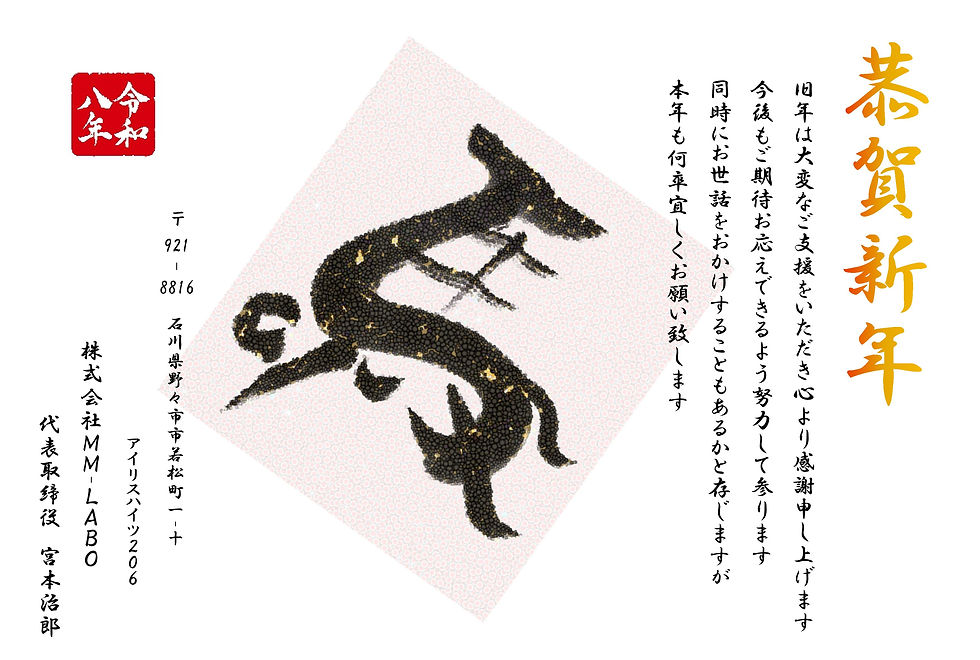 恭賀新年
旧年は大変なご支援をいただき心より感謝申し上げます
今後もご期待お応えできるよう努力して参ります
同時にお世話をおかけすることもあるかと存じますが
本年も何卒宜しくお願い致します
令和
八年
〒921-8816 石川県野々市市若松町一-十
アイリスハイツ206
株式会社MM-LABO
代表取締役 宮本治郎